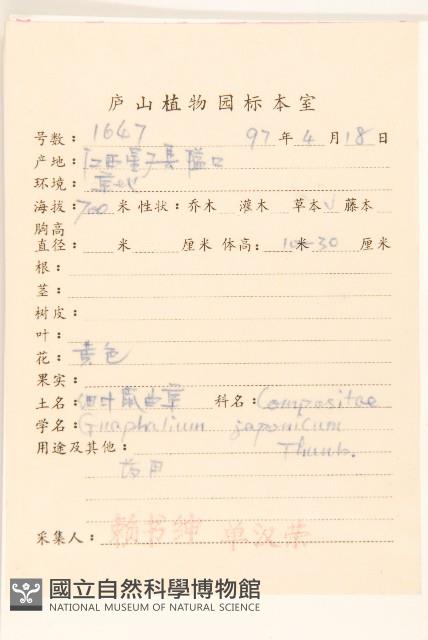 庐山植物园标本室
号数: 1647 97年4月18日
产地: 江西星子县隘口
环境: 草地
海拔: 700米 性状: 乔木 灌木 草本√ 藤本
胸高
直径: 米 厘米 体高: 10-30 厘米
根:
茎:
树皮:
叶:
花: 黄色
果实:
土名: 细叶鼠曲草 科名: Compositae
学名: Gnaphalium japonicum
用途及其他: Thunb.
药用
采集人: 赖书绅 单汉荣
國立自然科學博物館
NATIONAL MUSEUM OF NATURAL SCIENCE